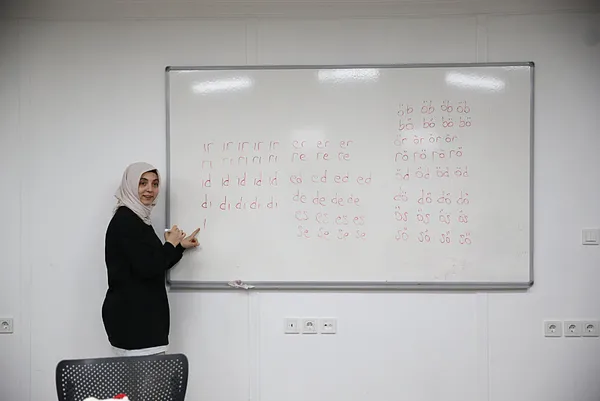 ır ır ır ır ır
rı rı rı rı rı
ıd ıd ıd ıd ıd
dı dı dı dı dı
ı
er er er
re re re
ed ed ed ed ed
de de de de
es es es es
se se se se
öb öb öb öb
bö bö bö bö
ör ör ör ör
rö rö rö rö
öd öd öd öd
dö dö dö
ös ös ös ös
sö sö sö sö